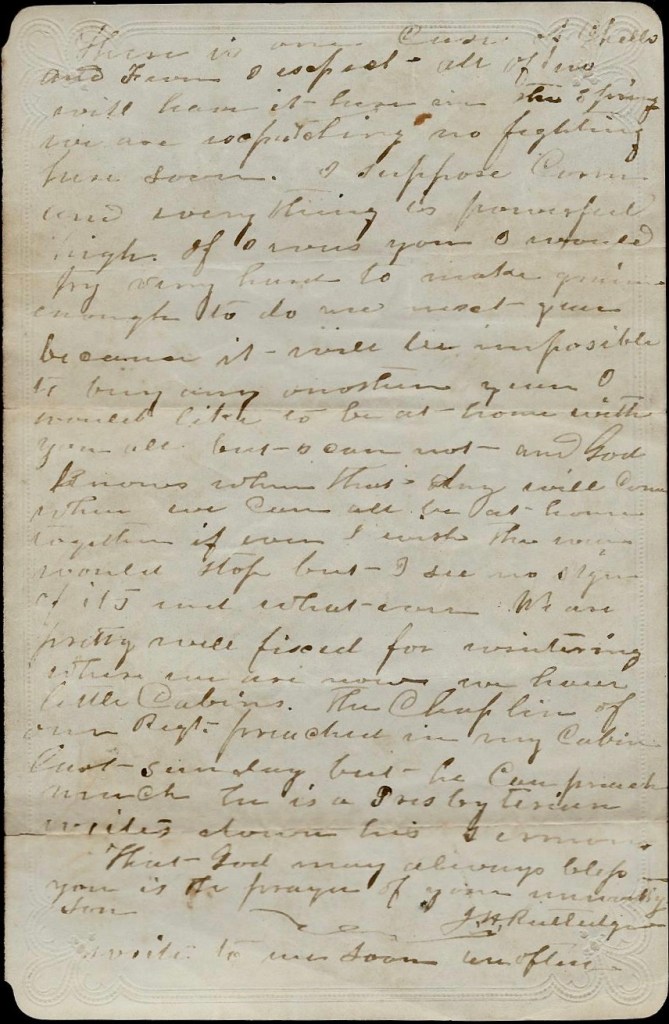 There is one Case
and I expect all of us
will have it here in the Spring
we are expecting no fighting
here soon. I suppose Corn
and everything is powerful
high. If I was you I would
try very hard to make grain
enough to do me next year
because it will be imposible
to buy any another year I
would like to be at home with
you all but I can not and God
knows when that day will Come
when we Can all be at home
together if ever I wish the war
would stop but I see no sign
of its end what ever We are
pretty well fixed for wintering
where we are now we have
little Cabins. The Chaplin of
our Regt. preached in my Cabin
last sunday but he Can preach
much he is a Presbyterian
writes down his Sermons.
That God may always bless
you is the prayer of your unworthy
Son J. H. Rutledge
write to me soon